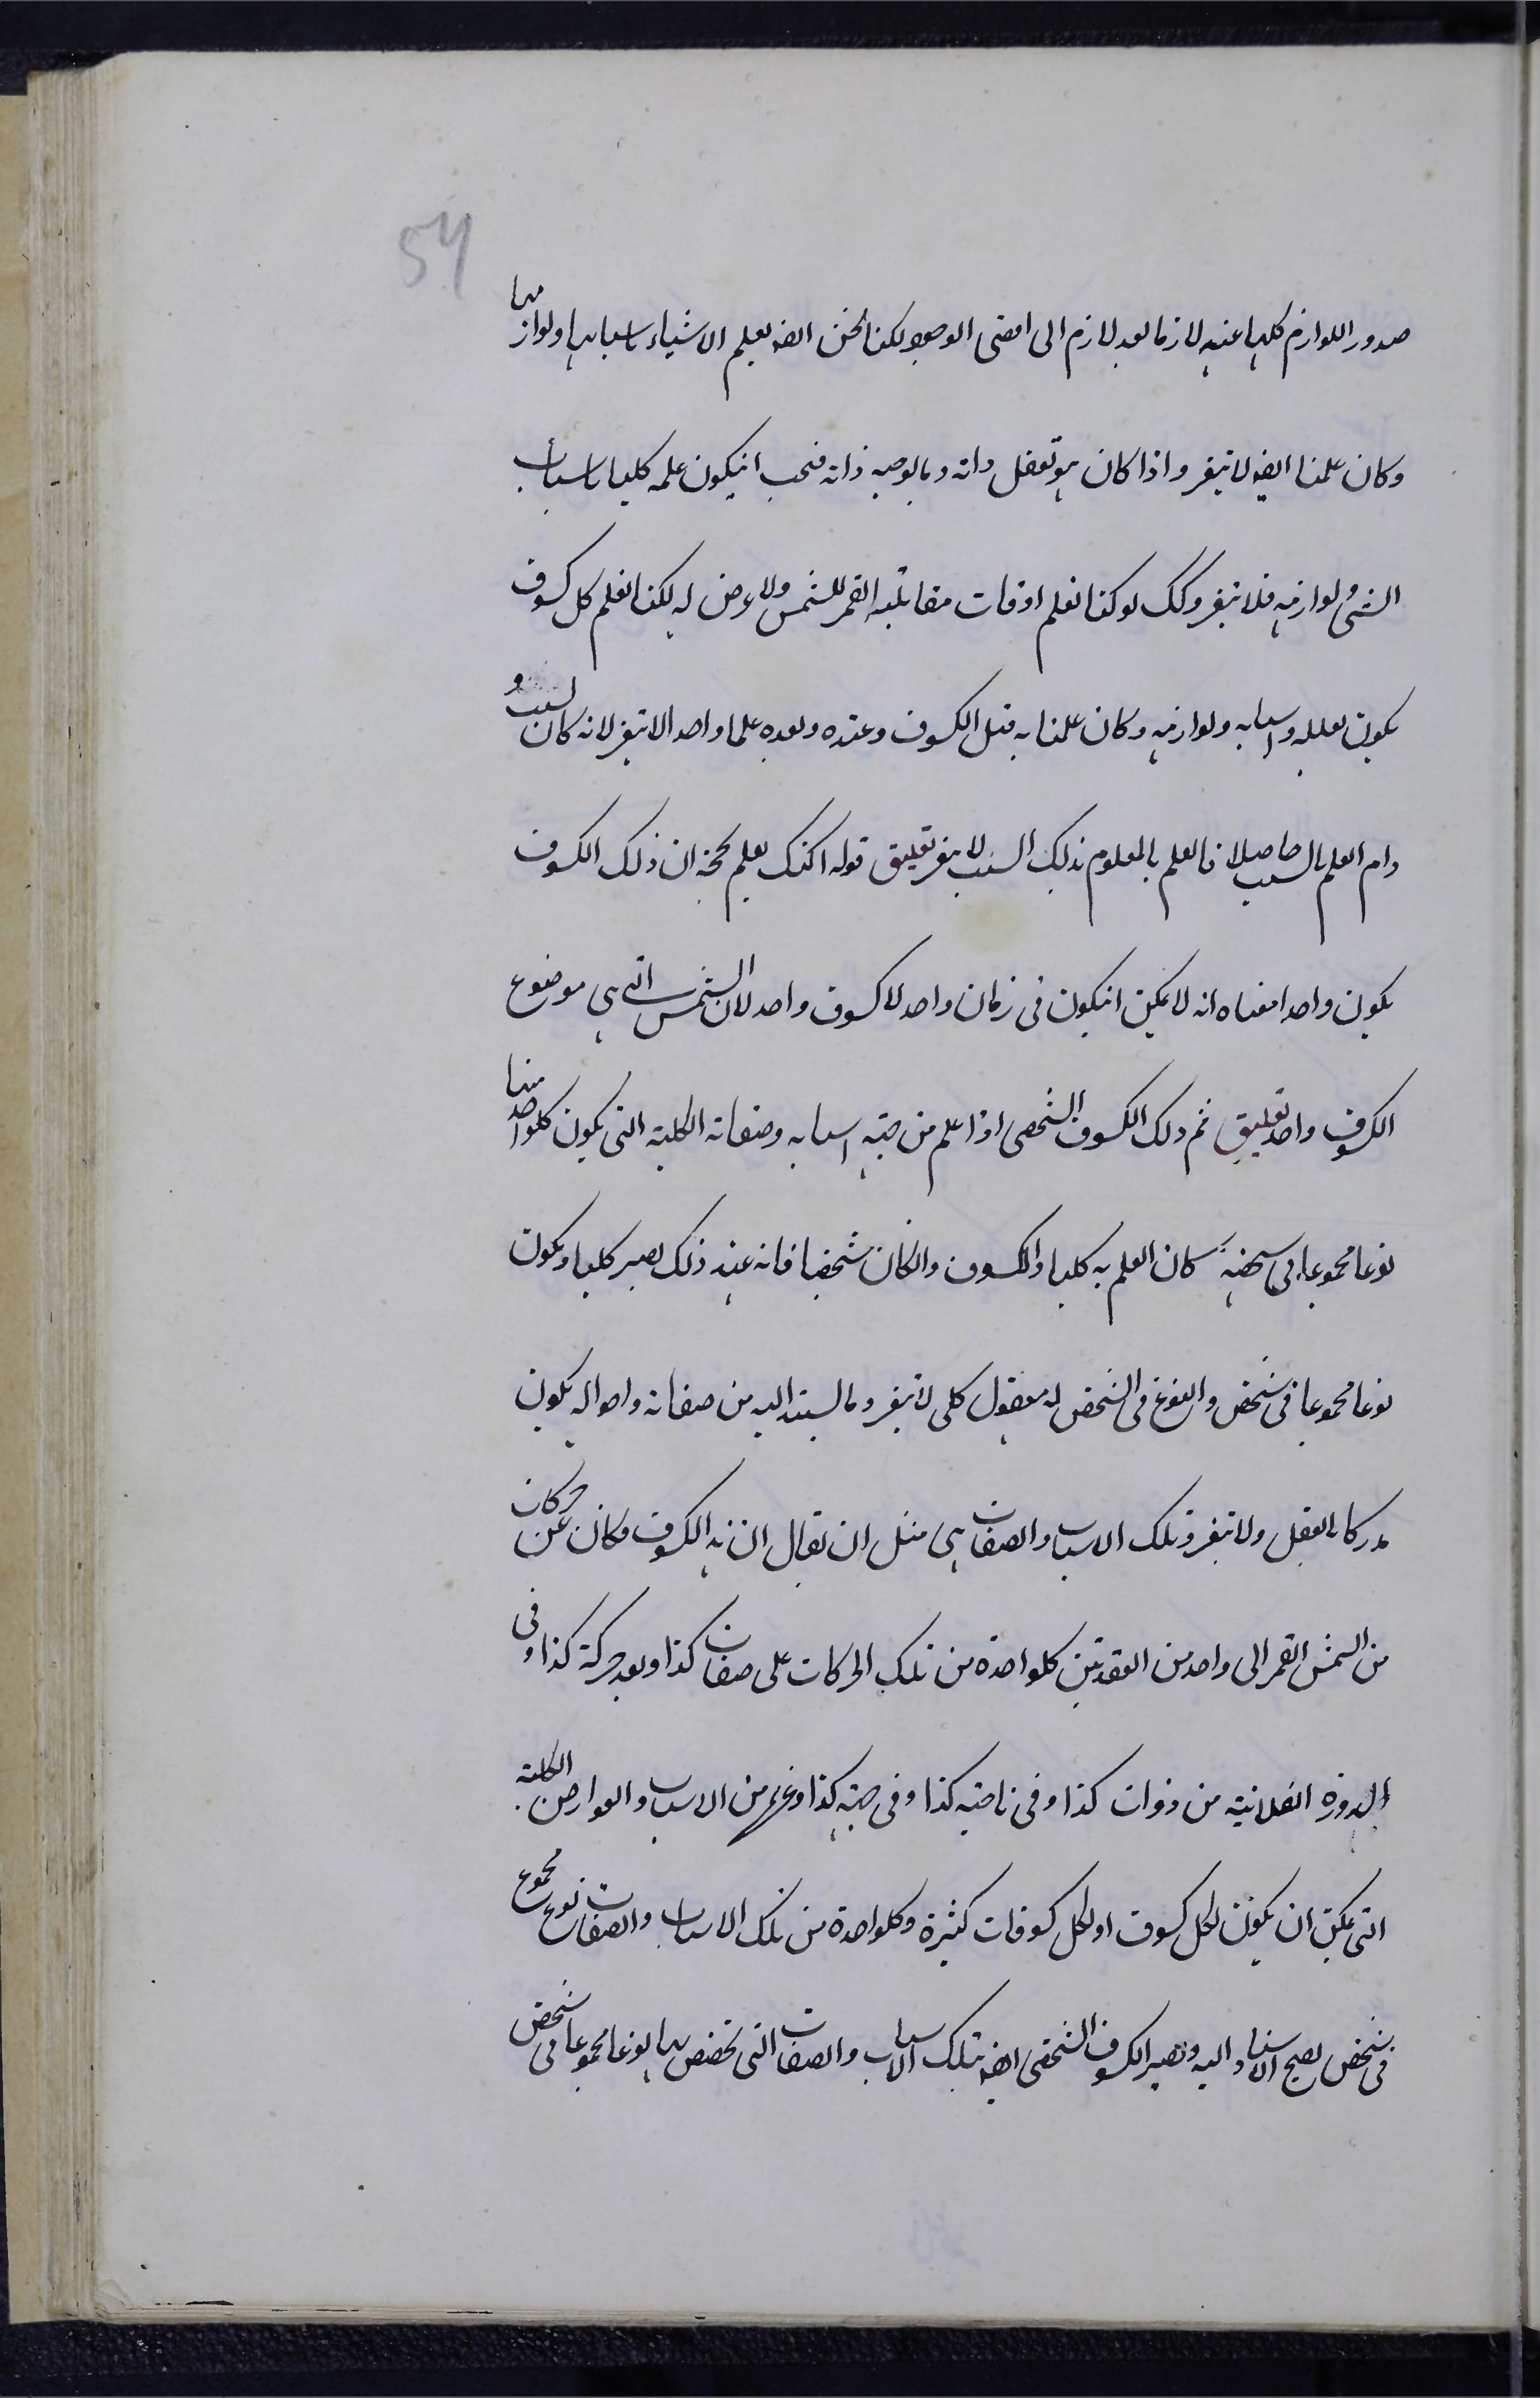 54
صدور اللوازم كلها عنه لازما بعد لازم الى اقصى الوجود لكنا نحن ايضا نعلم الاشياء باسبابها ولوازمها
وكان علمنا ايضا لا يتغير واذا كان هو تعقل ذاته وما يوجبه ذاته فيجب انيكون علمه كليا باسباب
الشئ ولوازمه فلا يتغير وكك لو كنا نعلم اوقات مقابلة القمر للشمس ولا عرض له لكنا نعلم كل كسوف
يكون بعلله واسبابه ولوازمه وكان علمنا به قبل الكسوف وعنده وبعده علما واحدا لا يتغير لانه كان لسبب و
دام العلم بالسبب حاصلا فالعلم بالمعلوم بذلك السبب لا يتغير تعليق قوله اكنك تعلم بحجة ان ذلك الكسوف
يكون واحدا معناه انه لا يمكن انيكون فى زمان واحد لا كسوف واحد لان الشمس التى هى موضوع
الكسوف واحد تعليق ثم ذلك الكسوف الشخصى اذا علم من جهة اسبابه وصفاته الكلية التى يكون كلواحد منها
نوعا مجموعا فى شخصه كان العلم به كليا والكسوف وانكان شخصيا فانه عند ذلك يصير كليا ويكون
نوعا مجموعا فى شخص والنوع فى الشخص له معقول كلى لا يتغير وما يستند اليه من صفاته واحواله يكون
مدركا بالعقل ولا يتغير وتلك الاسباب والصفات هى مثل ان يقال ان هذا الكسوف وكان عن حركات
من الشمس القمر الى واحد من العقدتين كلواحدة من تلك الحركات على صفات كذا وبعد حركة كذا وفى
الدورة الفلانية من ذوات كذا وفى ناحية كذا وفى جهة كذا وغيرها من الاسباب والعوارض الكلية
التى يمكن ان يكون لكل كسوف او لكل كسوفات كثيرة وكلواحدة من تلك الاسباب والصفات نوع مجموع
فى شخص يصح الاستناد اليه ويصير الكسوف الشخصى ايضا بتلك الاسباب والصفات التى تخصص بها نوعا مجموعا فى شخص